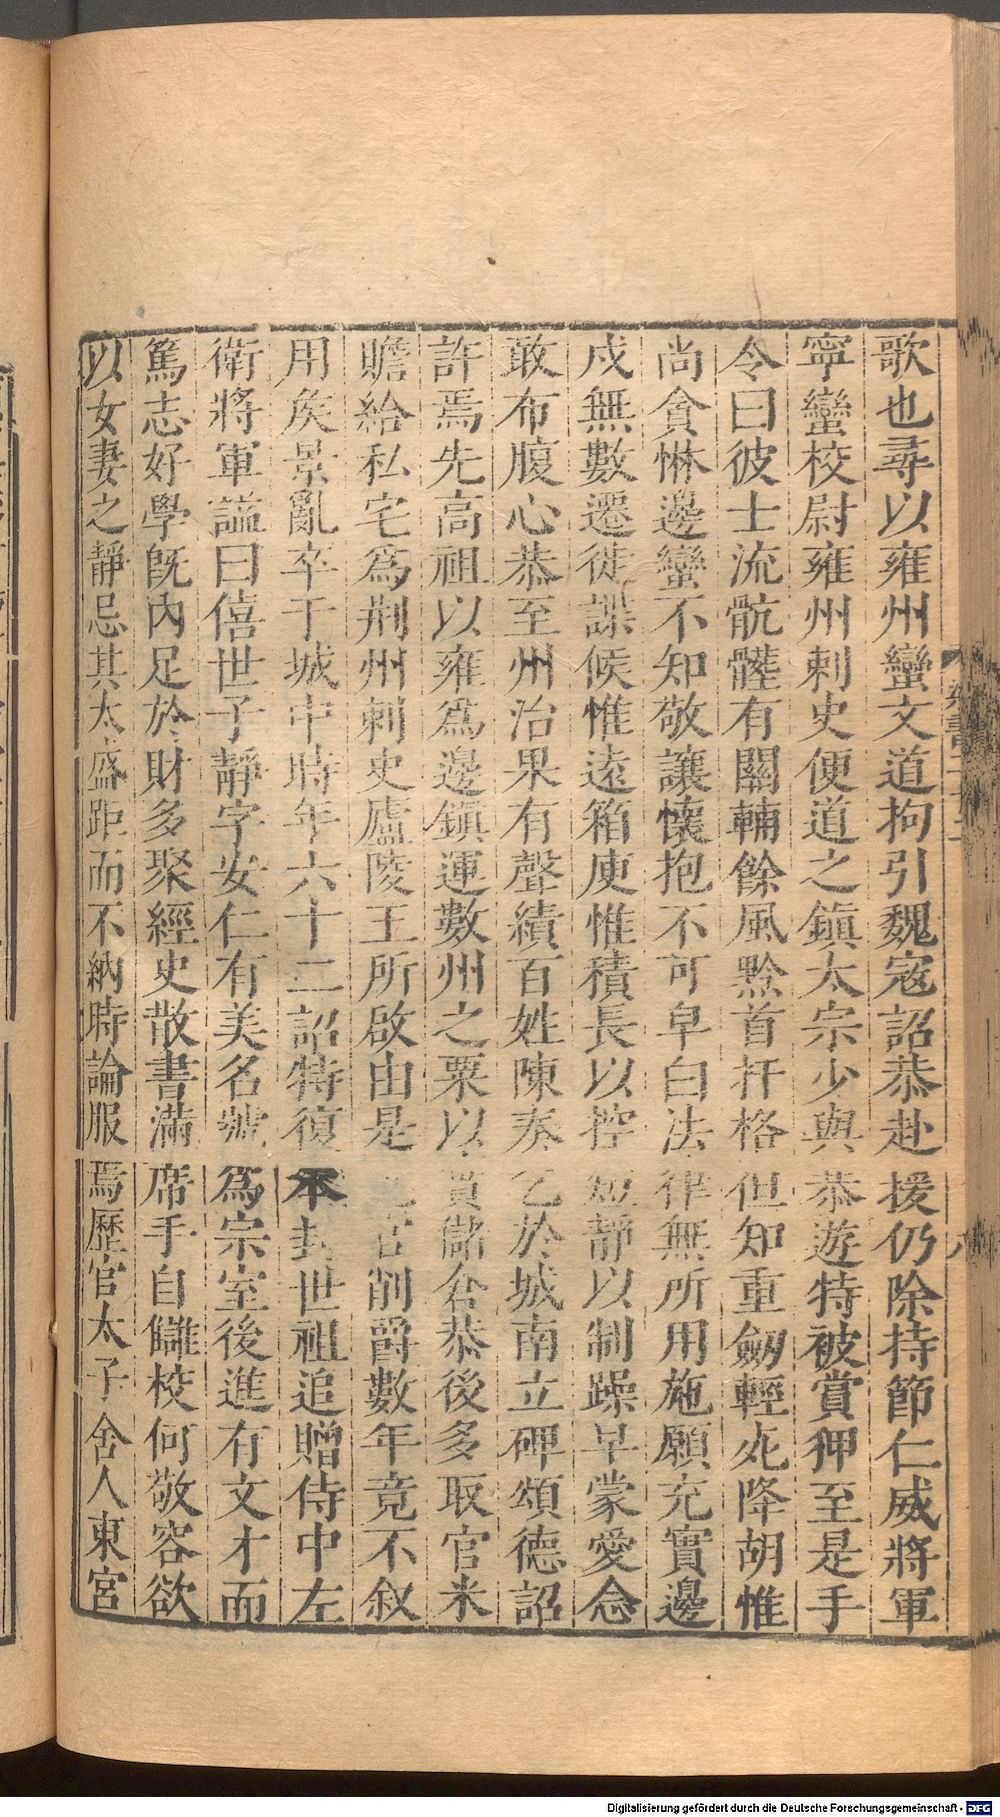 歌也尋以雍州蠻文道拘引魏寇詔恭赴援仍除持節仁威將軍
寧蠻校尉雍州刺史便道之鎮太宗少與恭遊特被賞狎至是手
令曰彼士流骯髒有關輔餘風黔首扞格但知重劒輕死降胡惟
尚貪惏邊蠻不知敬讓懷抱不可皁白法律無所用施願充實邊
戍無數遷徙諜候惟遠箱庾惟積長以控短靜以制躁早蒙愛念
敢布腹心恭至州治果有聲績百姓陳奏乞於城南立碑頌德詔
許焉先高祖以雍爲邊鎮運數州之粟以實儲倉恭後多取官米
贍給私宅爲荆州刺史廬陵王所啟由是官削爵數年竟不叙
用矦景亂卒于城中時年六十二詔特復本封世祖追贈侍中左
衛將軍謚曰僖世子靜字安仁有美名號爲宗室後進有文才而
篤志好學旣內足於財多聚經史散書滿席手自讎校何敬容欲
以女妻之靜忌其太盛距而不納時論服焉歷官太子舍人東宮
梁書二十二
八
Digitalisierung gefördert durch die Deutsche Forschungsgemeinschaft - DFG